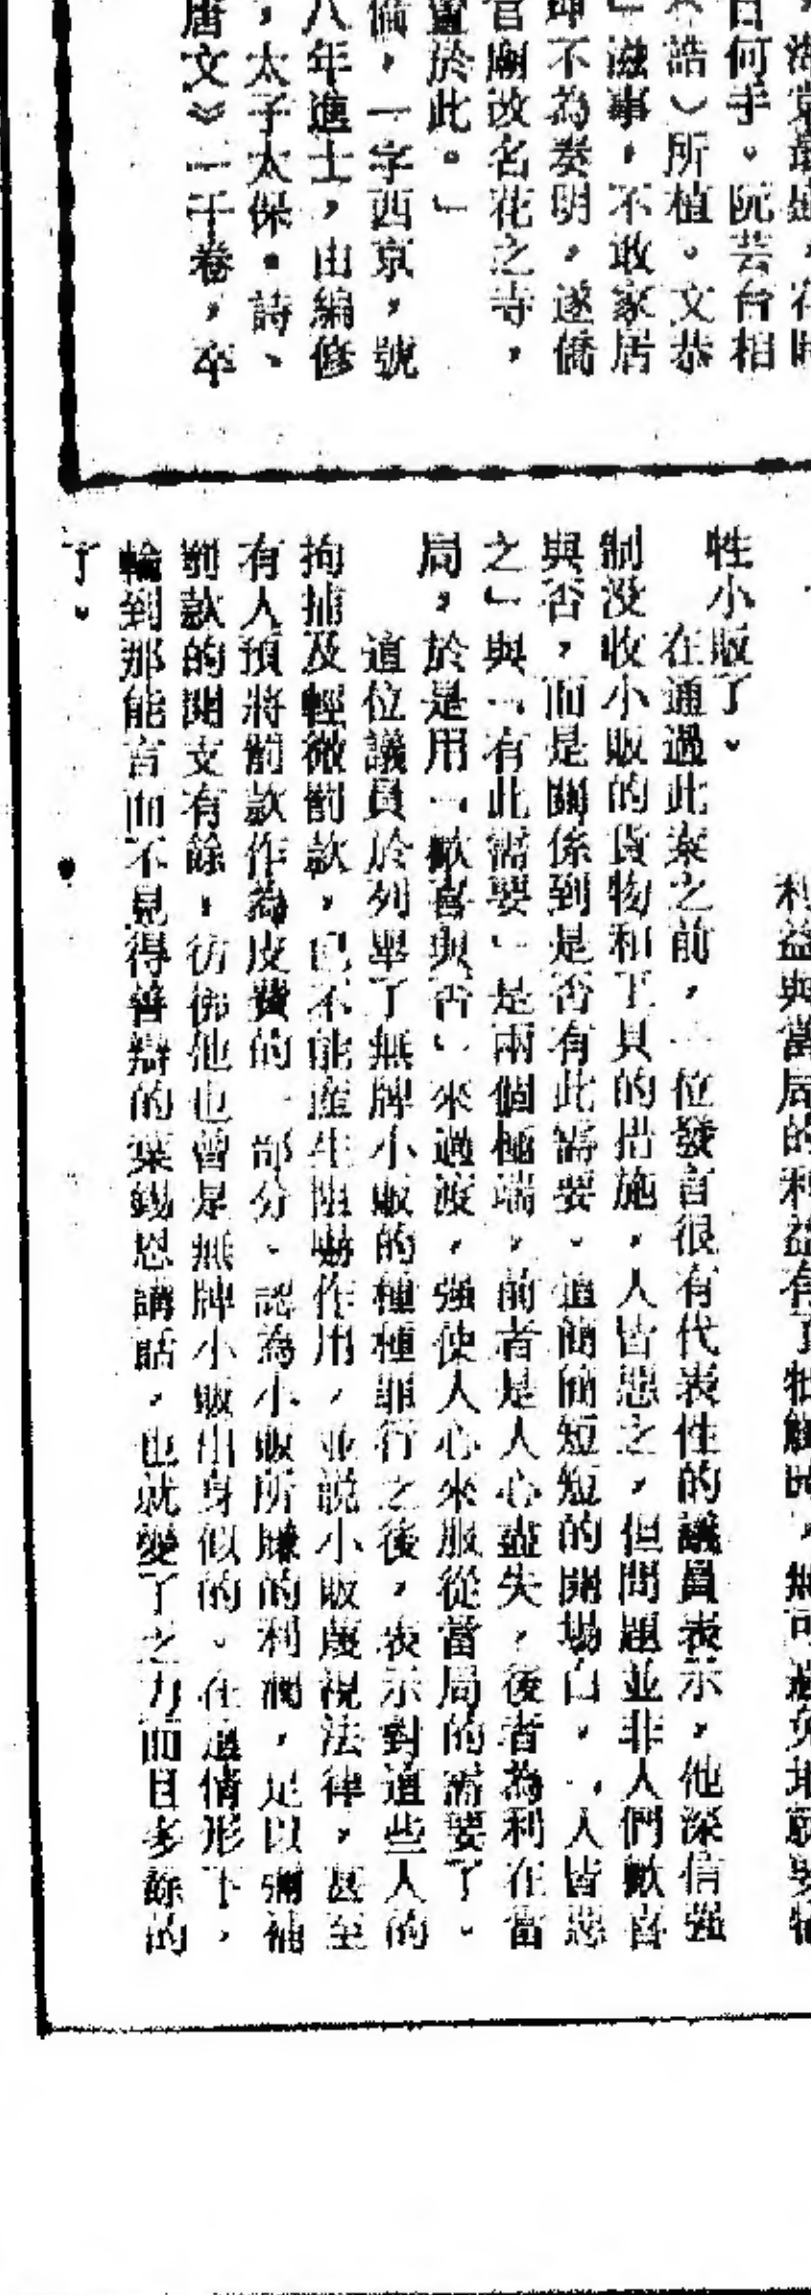 湖裳最盛，在
日何手。阮芸台相
誥）所植。文恭
」滋事，不敢家居
即不為奏明，遂僑
官廟改名花之寺，
置於此。」
備，一字西京，號
八年進士，由編修
，太子太保。詩、
唐文》一千卷，卒
利益與當局的利益有了牴觸時，無可避免地就要犧
牲小販了。
在通過此案之前，一位發言很有代表性的議員表示，他深信强
制没收小販的貨物和工具的措施，人皆惡之，但問題並非人們歡喜
與否，而是關係到是否有此需要。這簡簡短短的開場白，「人皆惡
之」與「有此需要」是兩個極端，前者是人心盡失，後者為利在當
局，於是用「歡喜與否」來過渡，强使人心來服從當局的需要了。
這位議員於列舉了無牌小販的種種罪行之後，表示對這些人的
拘捕及輕微罰款，已不能産生阻嚇作用，並説小販蔑視法律，甚至
有人預將罰款作為皮費的一部分、認為小販所賺的利潤，足以彌補
罰款的開支有餘，彷彿他也曾是無牌小販出身似的。在這情形下，
輪到那能言而不見得善辯的葉錫恩講話，也就變了乏力而且多餘的
了。